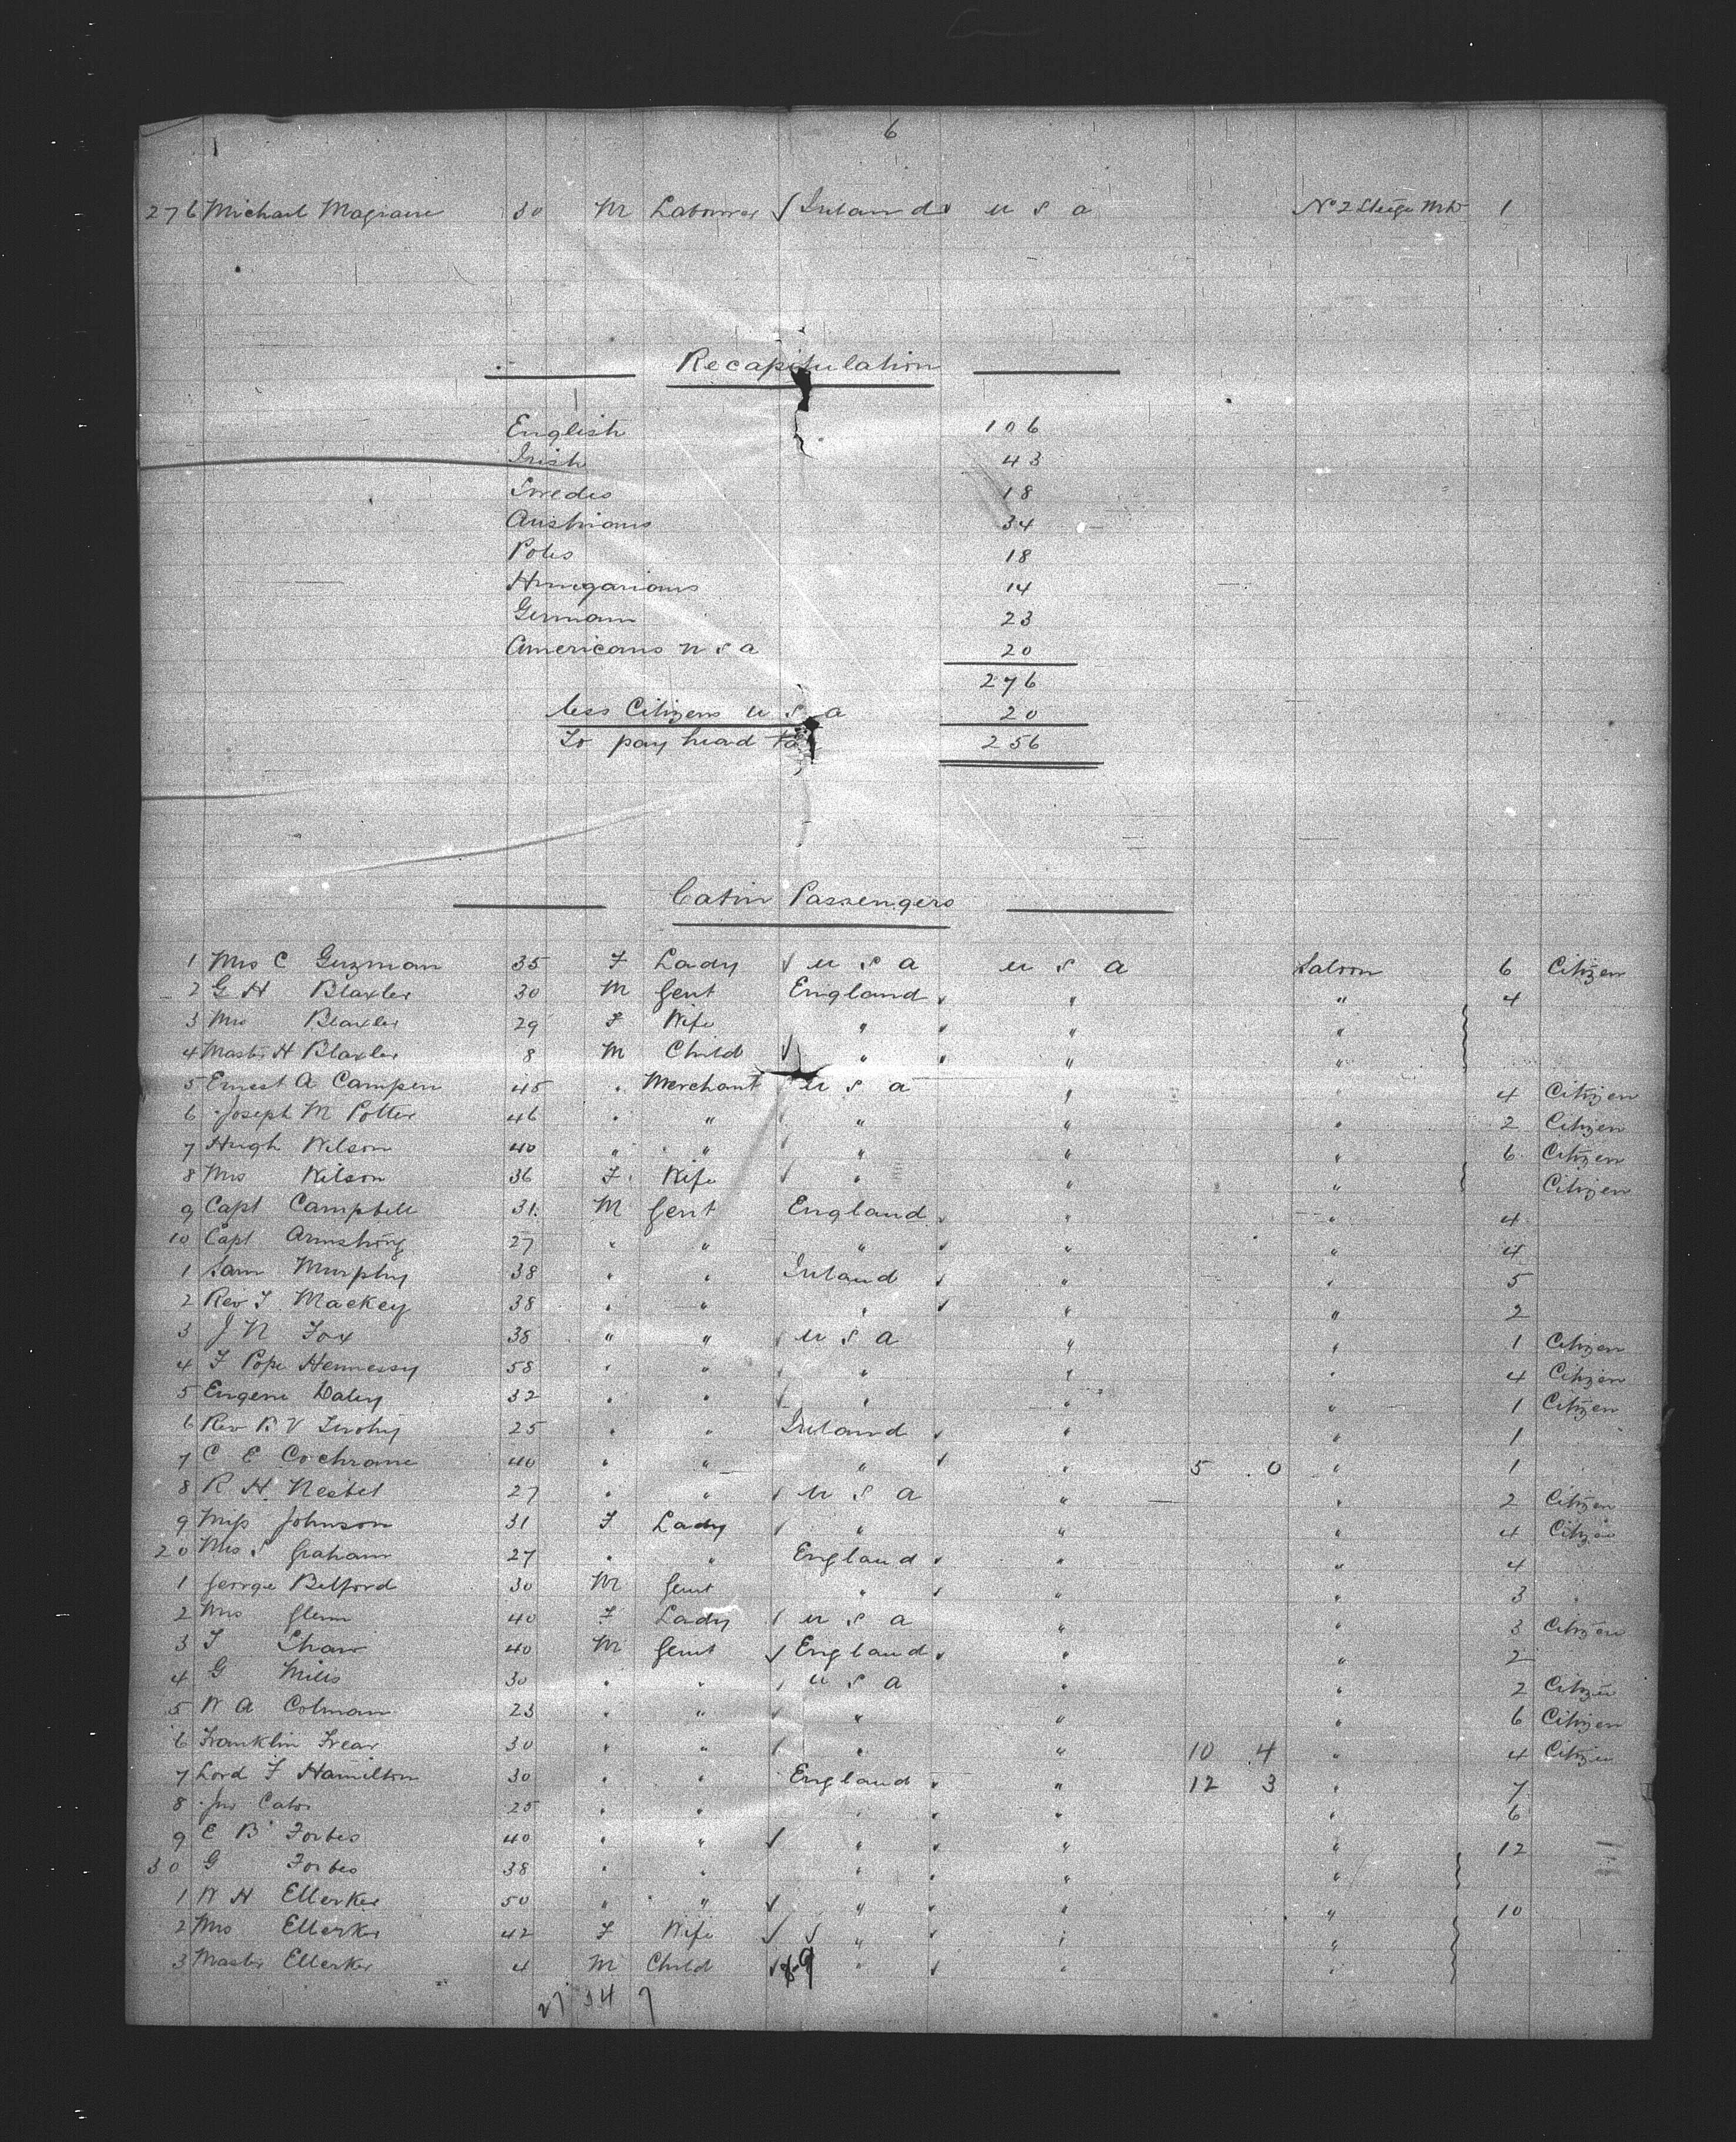 6
276 Michael Magraine 30 M Labourer √ Ireland " U S A No 2 Steege Mid 1
Recapitulation
English 106
Irish 43
Swedes 18
Austrians 34
Poles 18
Hungarians 14
German 23
Americans U S A 20
276
less Citizens U S A 20
To pay head tax 256
Cabin Passengers
1 Mrs C Guzman 35 F Lady √ U S A U S A Saloon 6 Citizen
2 G H Blaxler 30 M Gent England " " 4
3 Mrs Blaxler 29 F Wife " " "
4 Master H Blaxler 8 M Child √ " " "
5 Ernest A Campen 45 " Merchant U S A " " 4 Citizen
6 Joseph M Potter 46 " " " " " 2 Citizen
7 Hugh Wilson 40 " " " " " 6 Citizen
8 Mrs Wilson 36 F Wife " " " Citizen
9 Capt Campbell 31 M Gent England " " 4
10 Capt Armstrong 27 " " " " " 4
1 Sam Murphy 38 " " Ireland " " 5
2 Rev T Mackey 38 " " " " " 2
3 J N Fox 38 " " U S A " " 1 Citizen
4 F Pope Hennessy 58 " " " " " 4 Citizen
5 Eugene Daley 32 " " " " " 1 Citizen
6 Rev R V 25 " " Ireland " " 1
7 C E Cochrane 40 " " " " 5 0 " 1
8 R H Nesbet 27 " " U S A " " 2 Citizen
9 Miss Johnson 31 F Lady " " " 4 Citizen
20 Mrs S Graham 27 " " England " " 4
1 George Belford 30 M Gent " " " 3
2 Mrs Glenn 40 F Lady U S A " " 3 Citizen
3 T Shaw 40 M Gent √ England " " 2
4 G Mills 30 " " U S A " " 2 Citizen
5 W A Colman 23 " " " " " 6 Citizen
6 Franklin Frear 30 " " " " 10 4 " 4 Citizen
7 Lord F Hamilton 30 " " England " 12 3 " 7
8 Jno Cator 25 " " " " " 6
9 E B Forbes 40 " " √ " " " 12
30 G Forbes 38 " " " " "
1 W H Ellerker 50 " " √ " " " 10
2 Mrs Ellerker 42 F Wife √ " " "
3 Master Ellerker 4 M Child √ " " "